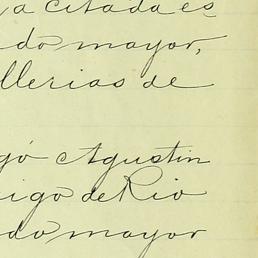 a citada es
do mayor,
llerias de
gó Agustin
igo de Rio
do mayor